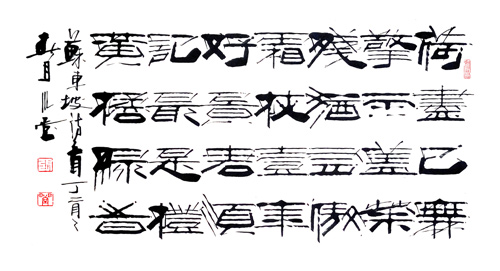 荷盡已無
擎雨蓋菊
殘猶有傲
霜枝壹年
好景君須
記最是橙
黃橘綠時
蘇東坡詩